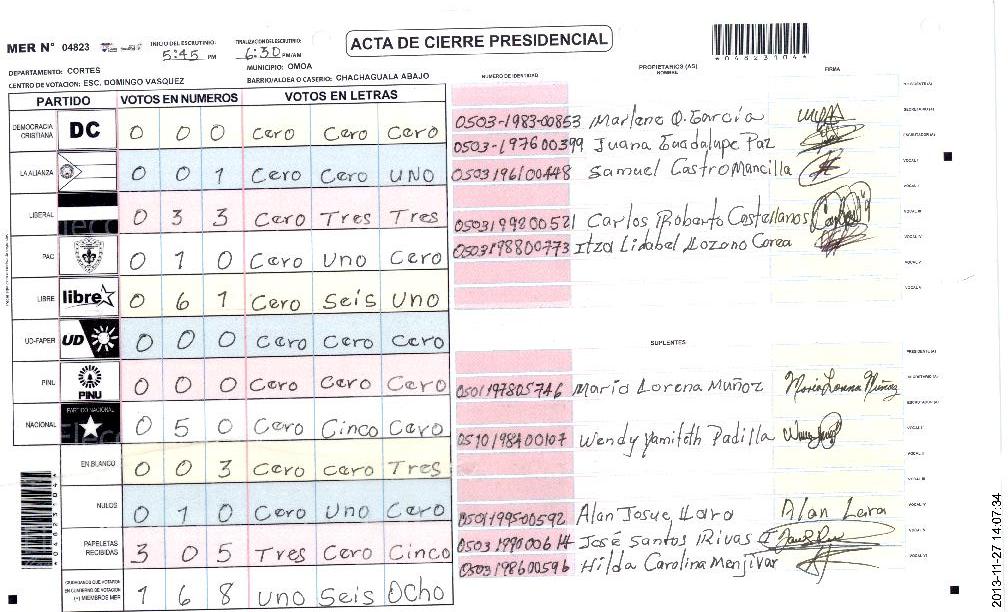 MER N° 04823 INICIO DEL ESCRUTINIO: 5:45 PM FINALIZACION DEL ESCRUTINIO: 6:30 PM/AM
ACTA DE CIERRE PRESIDENCIAL
* 0 4 8 2 3 1 0 4 *
DEPARTAMENTO: CORTES MUNICIPIO: OMOA
CENTRO DE VOTACION: ESC. DOMINGO VASQUEZ BARRIO/ALDEA O CASERIO: CHACHAGUALA ABAJO
PARTIDO VOTOS EN NUMEROS VOTOS EN LETRAS
DEMOCRACIA CRISTIANA DC 0 0 0 Cero Cero Cero
LA ALIANZA 0 0 1 Cero Cero UNO
LIBERAL 0 3 3 Cero Tres Tres
PAC 0 1 0 Cero Uno Cero
LIBRE libre 0 6 1 Cero Seis Uno
UD-FAPER UD 0 0 0 Cero Cero Cero
PINU PINU 0 0 0 Cero Cero Cero
NACIONAL PARTIDO NACIONAL 0 5 0 Cero Cinco Cero
EN BLANCO 0 0 3 Cero Cero Tres
NULOS 0 1 0 Cero Uno Cero
PAPELETAS RECIBIDAS 3 0 5 Tres Cero Cinco
CIUDADANOS QUE VOTARON EN CUADERNO DE VOTACION (+) MIEMBROS MER 1 6 8 Uno Seis Ocho
NUMERO DE IDENTIDAD PROPIETARIOS (AS) NOMBRE FIRMA
PRESIDENTE (A)
SECRETARIO (A)
0503-1983-00853 Marlene O. García
ESCRUTADOR (A)
0503-197600399 Juana Guadalupe Paz
VOCAL I
0503196100448 Samuel Castro Mancilla
VOCAL II
VOCAL III
0503199200521 Carlos Roberto Castellanos
VOCAL IV
0503198800773 Itza Lidabel Lozano Corea
VOCAL V
VOCAL VI
SUPLENTES
PRESIDENTE (A)
SECRETARIO (A)
0501197805746 Maria Lorena Muñoz Maria Lorena Muñoz
ESCRUTADOR (A)
VOCAL I
0510198400107 Wendy Yamileth Padilla
VOCAL II
VOCAL III
VOCAL IV
0501199500592 Alan Josue Lara Alan Lara
VOCAL V
0503199000614 José Santos Rivas
VOCAL VI
0503198600596 Hilda Carolina Menjivar
2013-11-27 14:07:34